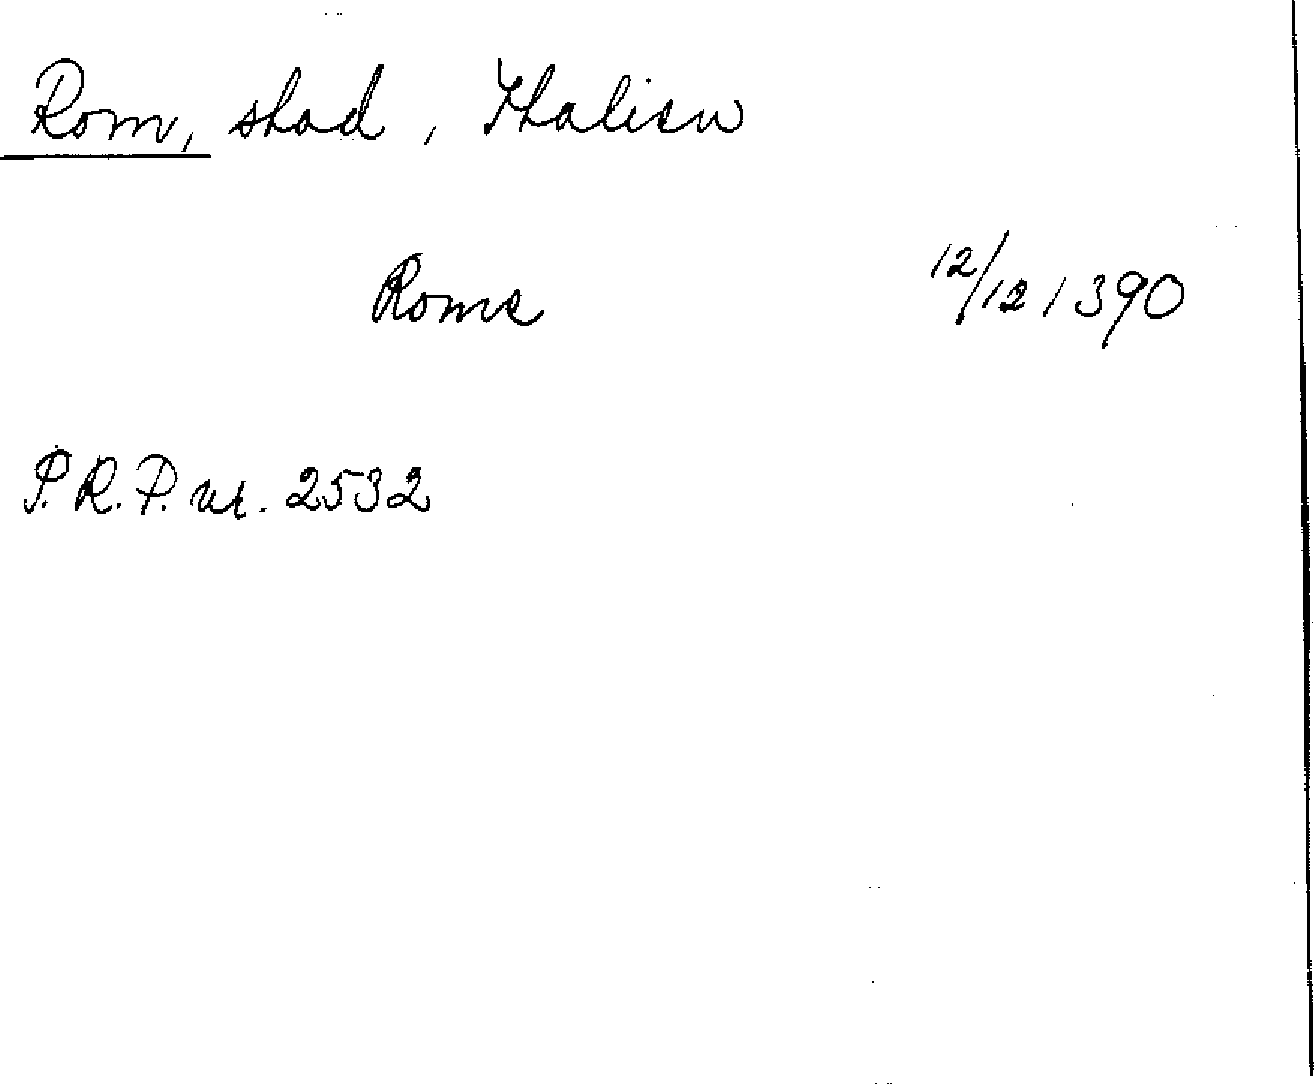 Rom, stad, Italien
Rome 12/12 1390
P.R.P. nr. 2532